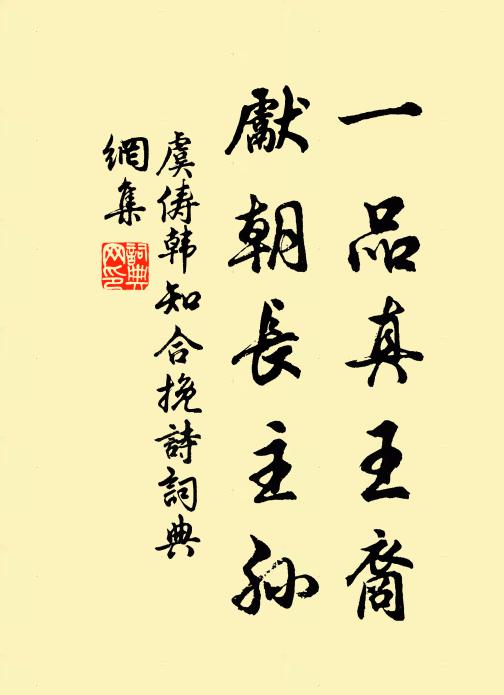 一品真王裔
獻朝長主孙
虞俦韩知合挽詩詞典
網集
詞典
网印